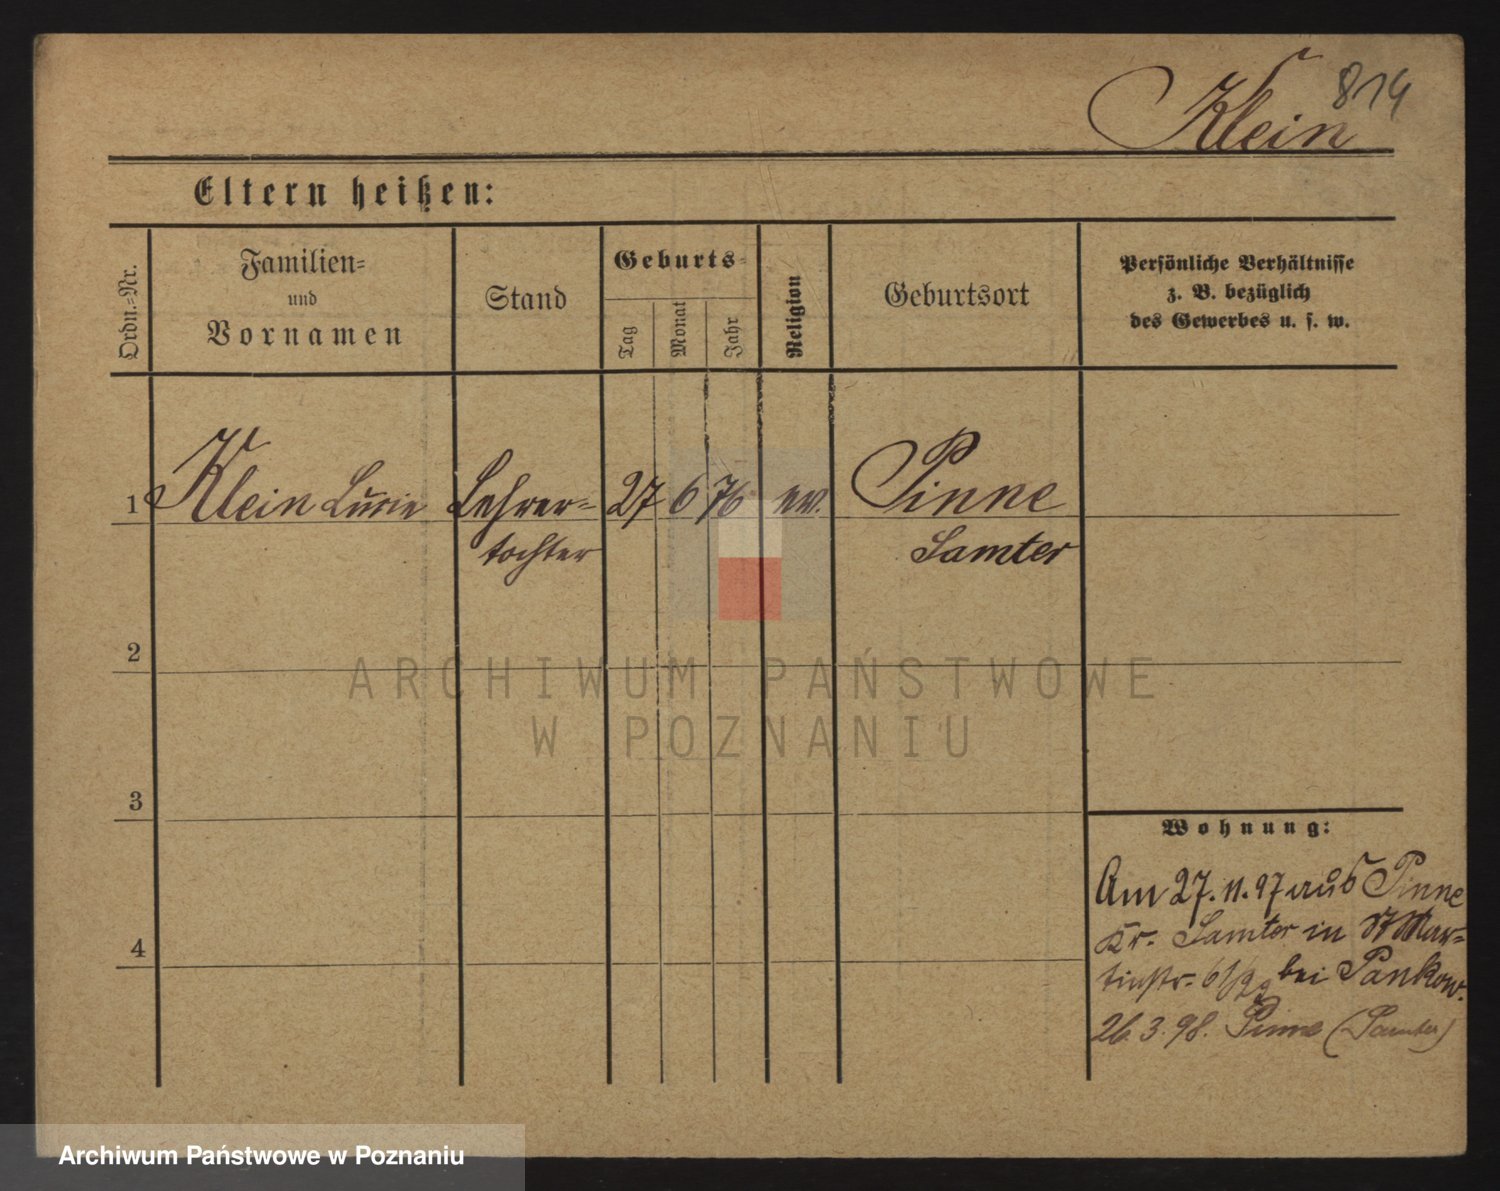 Klein 814
Eltern heißen:
Ordn.-Nr.
Familien-
und
Vornamen
Stand
Geburts-
Tag
Monat
Jahr
Religion
Geburtsort
Persönliche Verhältnisse
z. B. bezüglich
des Gewerbes u. s. w.
1 Klein Lucie Lehrer- 27 6 76 ev. Pinne
tochter Samter
2
3
4
ARCHIWUM PAŃSTWOWE
W POZNANIU
Wohnung:
Am 27. 11. 97 aus Pinne
Kr. Samter in St Mar-
tinstr. bei Pankow.
26. 3. 98. Pinne (Samter)
Archiwum Państwowe w Poznaniu